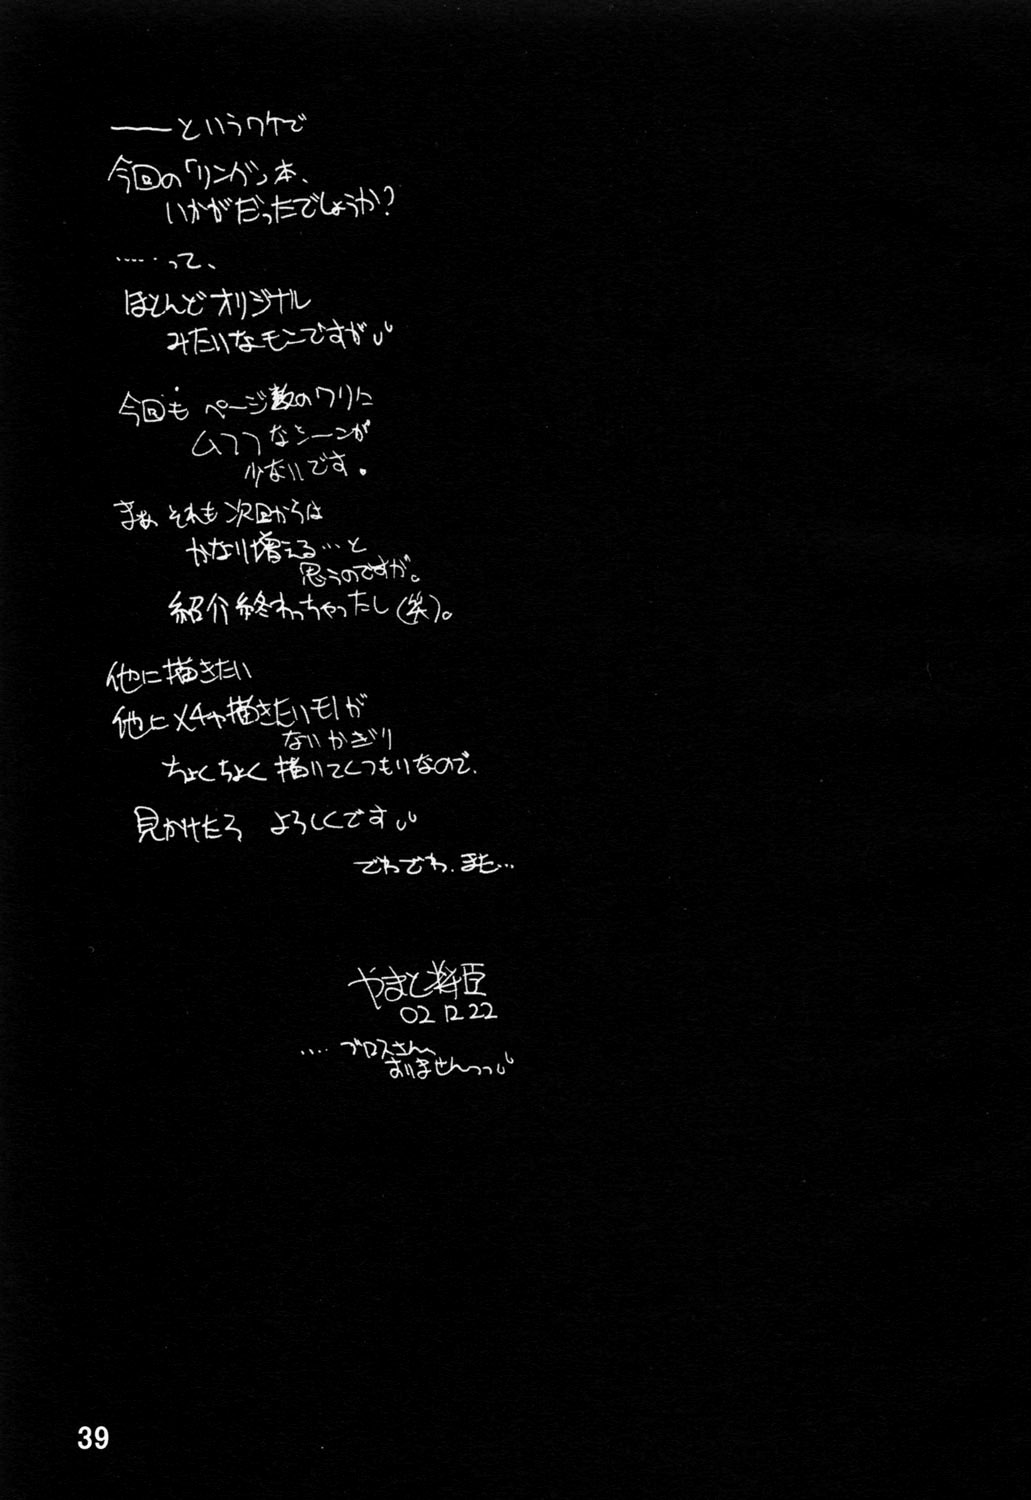 ――というワケで
今回の「リング」本、
いかがだったでしょうか?
……って、
ほとんどオリジナル
みたいなモンですが
今回も ページ数のワリに
ムフフなシーンが
少ないです。
まぁ それも次回からは
かなり増える…と
思うのですが。
紹介終わっちゃったし(笑)。
他に描きたい
他にメチャ描きたいモノが
ないかぎり
ちょくちょく描いてくつもりなので、
見かけたら よろしくです
でわでわ、また…
やまと
02 12 22
…. ブロスさん、
すいませんっっ
39